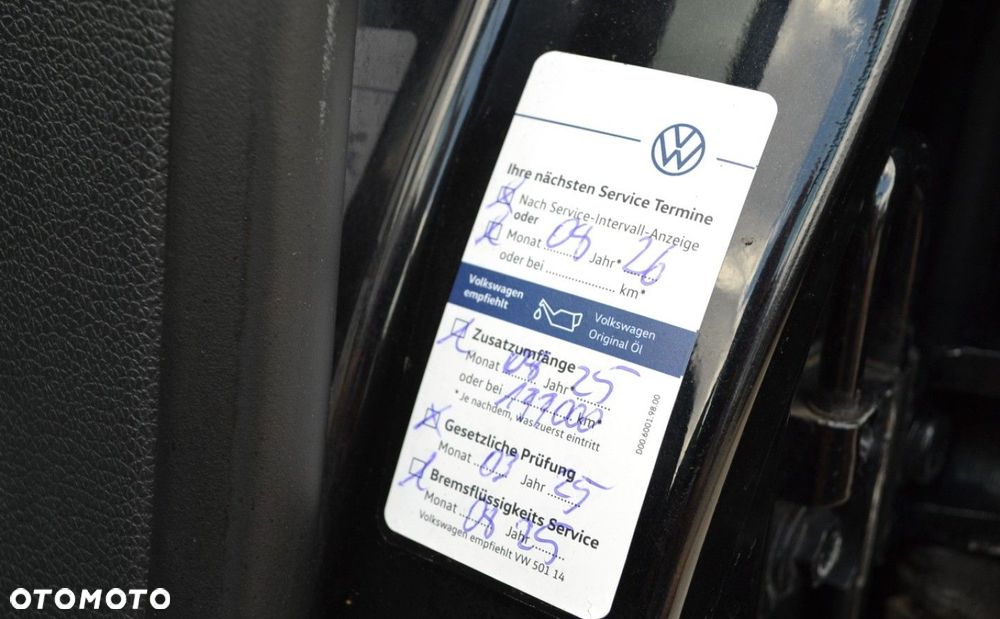 Ihre nächsten Service Termine
Nach Service-Intervall-Anzeige
oder
Monat 08 Jahr* 26
oder bei .................... km*
Volkswagen
empfiehlt
Volkswagen
Original Öl
Zusatzumfänge
Monat 08 Jahr 25
oder bei 000 km*
*Je nachdem, was zuerst eintritt
D00.6001.98.00
Gesetzliche Prüfung
Monat 03 Jahr 25
Bremsflüssigkeits Service
Monat 08 Jahr 25
Volkswagen empfiehlt VW 501 14
OTOMOTO